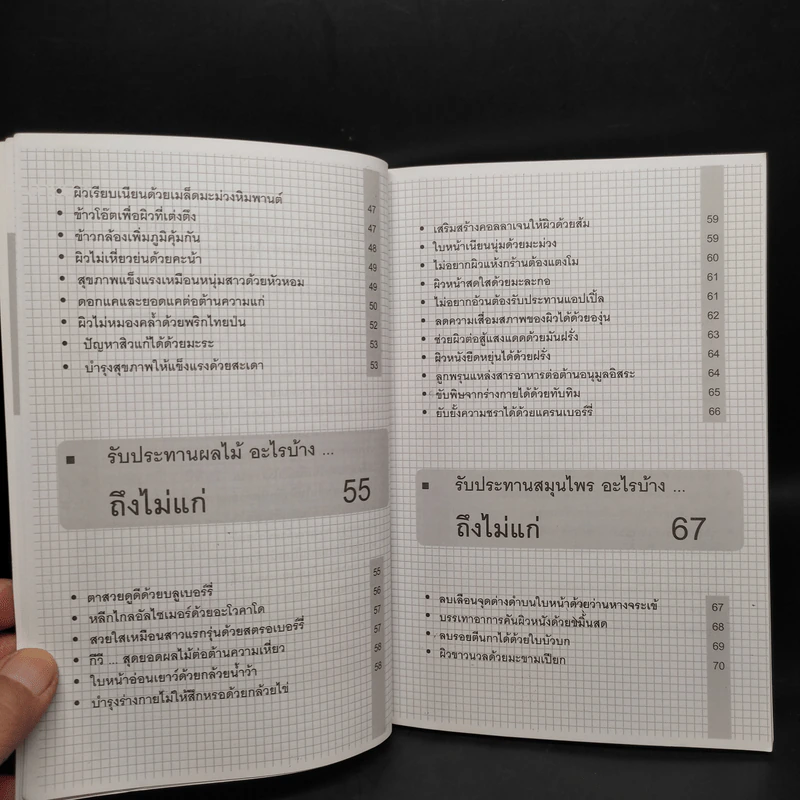 • ผิวเรียบเนียนด้วยเมล็ดมะม่วงหิมพานต์ 47
• ข้าวโอ๊ตเพื่อผิวที่เต่งตึง 47
• ข้าวกล้องเพิ่มภูมิคุ้มกัน 48
• ผิวไม่เหี่ยวย่นด้วยคะน้า 49
• สุขภาพแข็งแรงเหมือนหนุ่มสาวด้วยหัวหอม 49
• ดอกแคและยอดแคต่อต้านความแก่ 50
• ผิวไม่หมองคล้ำด้วยพริกไทยป่น 52
• ปัญหาสิวแก้ได้ด้วยมะระ 53
• บำรุงสุขภาพให้แข็งแรงด้วยสะเดา 53
■ รับประทานผลไม้ อะไรบ้าง ...
ถึงไม่แก่ 55
• ตาสวยดูดีด้วยบลูเบอร์รี่ 55
• หลีกไกลอัลไซเมอร์ด้วยอะโวคาโด 56
• สวยใสเหมือนสาวแรกรุ่นด้วยสตรอเบอร์รี่ 57
• กีวี ... สุดยอดผลไม้ต่อต้านความเหี่ยว 57
• ใบหน้าอ่อนเยาว์ด้วยกล้วยน้ำว้า 58
• บำรุงร่างกายไม่ให้สึกหรอด้วยกล้วยไข่ 58
• เสริมสร้างคอลลาเจนให้ผิวด้วยส้ม 59
• ใบหน้าเนียนนุ่มด้วยมะม่วง 59
• ไม่อยากผิวแห้งกร้านต้องแตงโม 60
• ผิวหน้าสดใสด้วยมะละกอ 61
• ไม่อยากอ้วนต้องรับประทานแอปเปิ้ล 61
• ลดความเสื่อมสภาพของผิวได้ด้วยองุ่น 62
• ช่วยผิวต่อสู้แสงแดดด้วยมันฝรั่ง 63
• ผิวหนังยืดหยุ่นได้ด้วยฝรั่ง 64
• ลูกพรุนแหล่งสารอาหารต่อต้านอนุมูลอิสระ 64
• ขับพิษจากร่างกายได้ด้วยทับทิม 65
• ยับยั้งความชราได้ด้วยแครนเบอร์รี่ 66
■ รับประทานสมุนไพร อะไรบ้าง ...
ถึงไม่แก่ 67
• ลบเลือนจุดด่างดำบนใบหน้าด้วยว่านหางจระเข้ 67
• บรรเทาอาการคันผิวหนังด้วยขมิ้นสด 68
• ลบรอยตีนกาได้ด้วยใบบัวบก 69
• ผิวขาวนวลด้วยมะขามเปียก 70